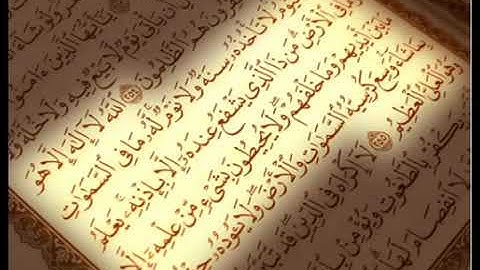 يَـٰٓأَيُّهَا ٱلَّذِينَ ءَامَنُوٓا۟
أَن يَأْتِىَ يَوْمٌ لَّا بَيْعٌ فِيهِ وَلَا خُلَّةٌ وَلَا
هُمُ ٱلظَّـٰلِمُونَ ٢٥٤ ٱللَّهُ لَآ إِلَـٰهَ إِلَّا هُوَ
لَا تَأْخُذُهُۥ سِنَةٌ وَلَا نَوْمٌ لَّهُۥ مَا فِى ٱلسَّمَـٰوَٰتِ
فِى ٱلْأَرْضِ مَن ذَا ٱلَّذِى يَشْفَعُ عِندَهُۥٓ إِلَّا بِإِذْنِهِۦ يَعْلَمُ
أَيْدِيهِمْ وَمَا خَلْفَهُمْ وَلَا يُحِيطُونَ بِشَىْءٍ مِّنْ عِلْمِهِۦٓ إِلَّا
شَآءَ وَسِعَ كُرْسِيُّهُ ٱلسَّمَـٰوَٰتِ وَٱلْأَرْضَ وَلَا يَـُٔودُهُۥ
وَهُوَ ٱلْعَلِىُّ ٱلْعَظِيمُ ٢٥٥ لَآ إِكْرَاهَ فِى ٱلدِّينِ قَد تَّبَيَّنَ
يَكْفُرْ بِٱلطَّـٰغُوتِ وَيُؤْمِنۢ
لَا ٱنفِصَامَ لَهَا